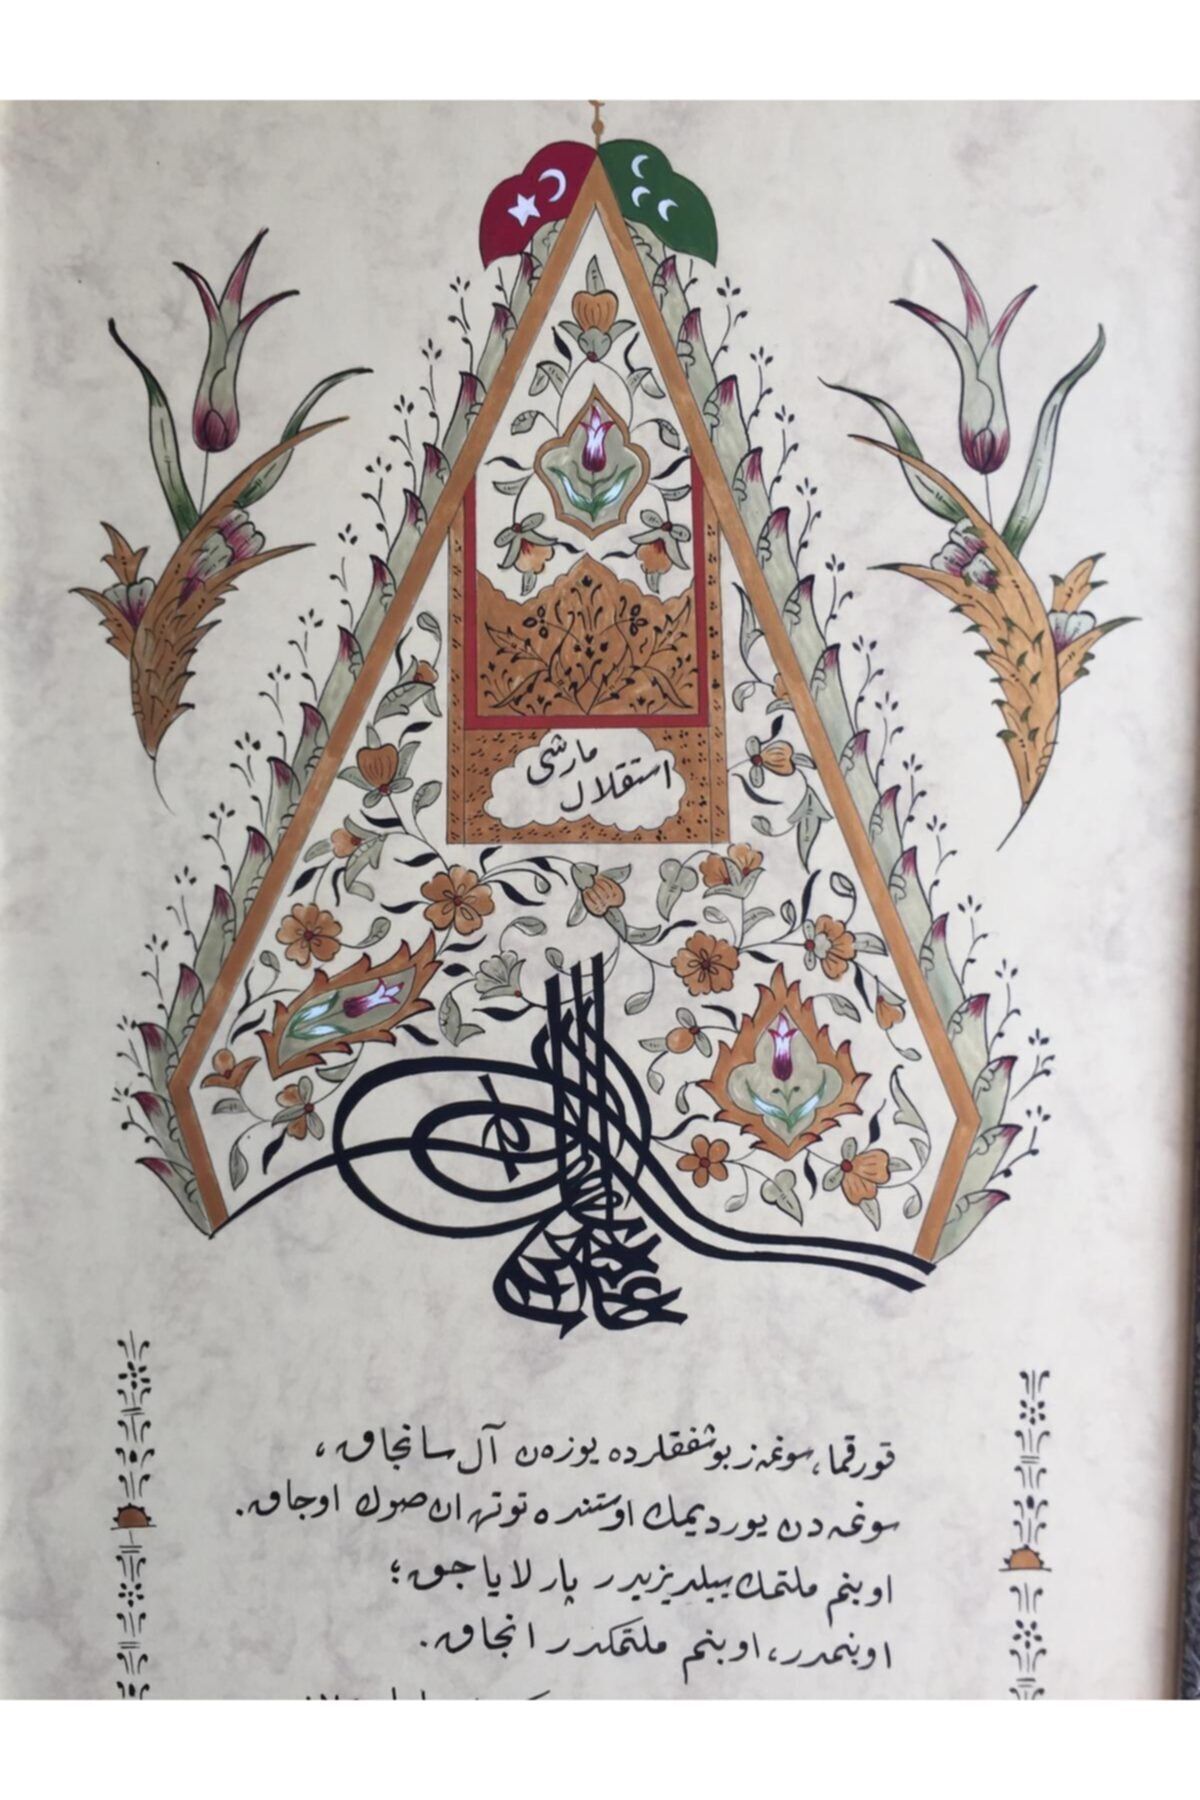 استقلال مارشی
قورقما، سونمز بو شفقلرده یوزەن آل سانجاق،
سونمەدن یوردیمك اوستنده توتەن صوك اوجاق.
او بنم ملتمك ییلدیزیدر پارلایاجق؛
او بنمدر، او بنم ملتمكدر انجاق.